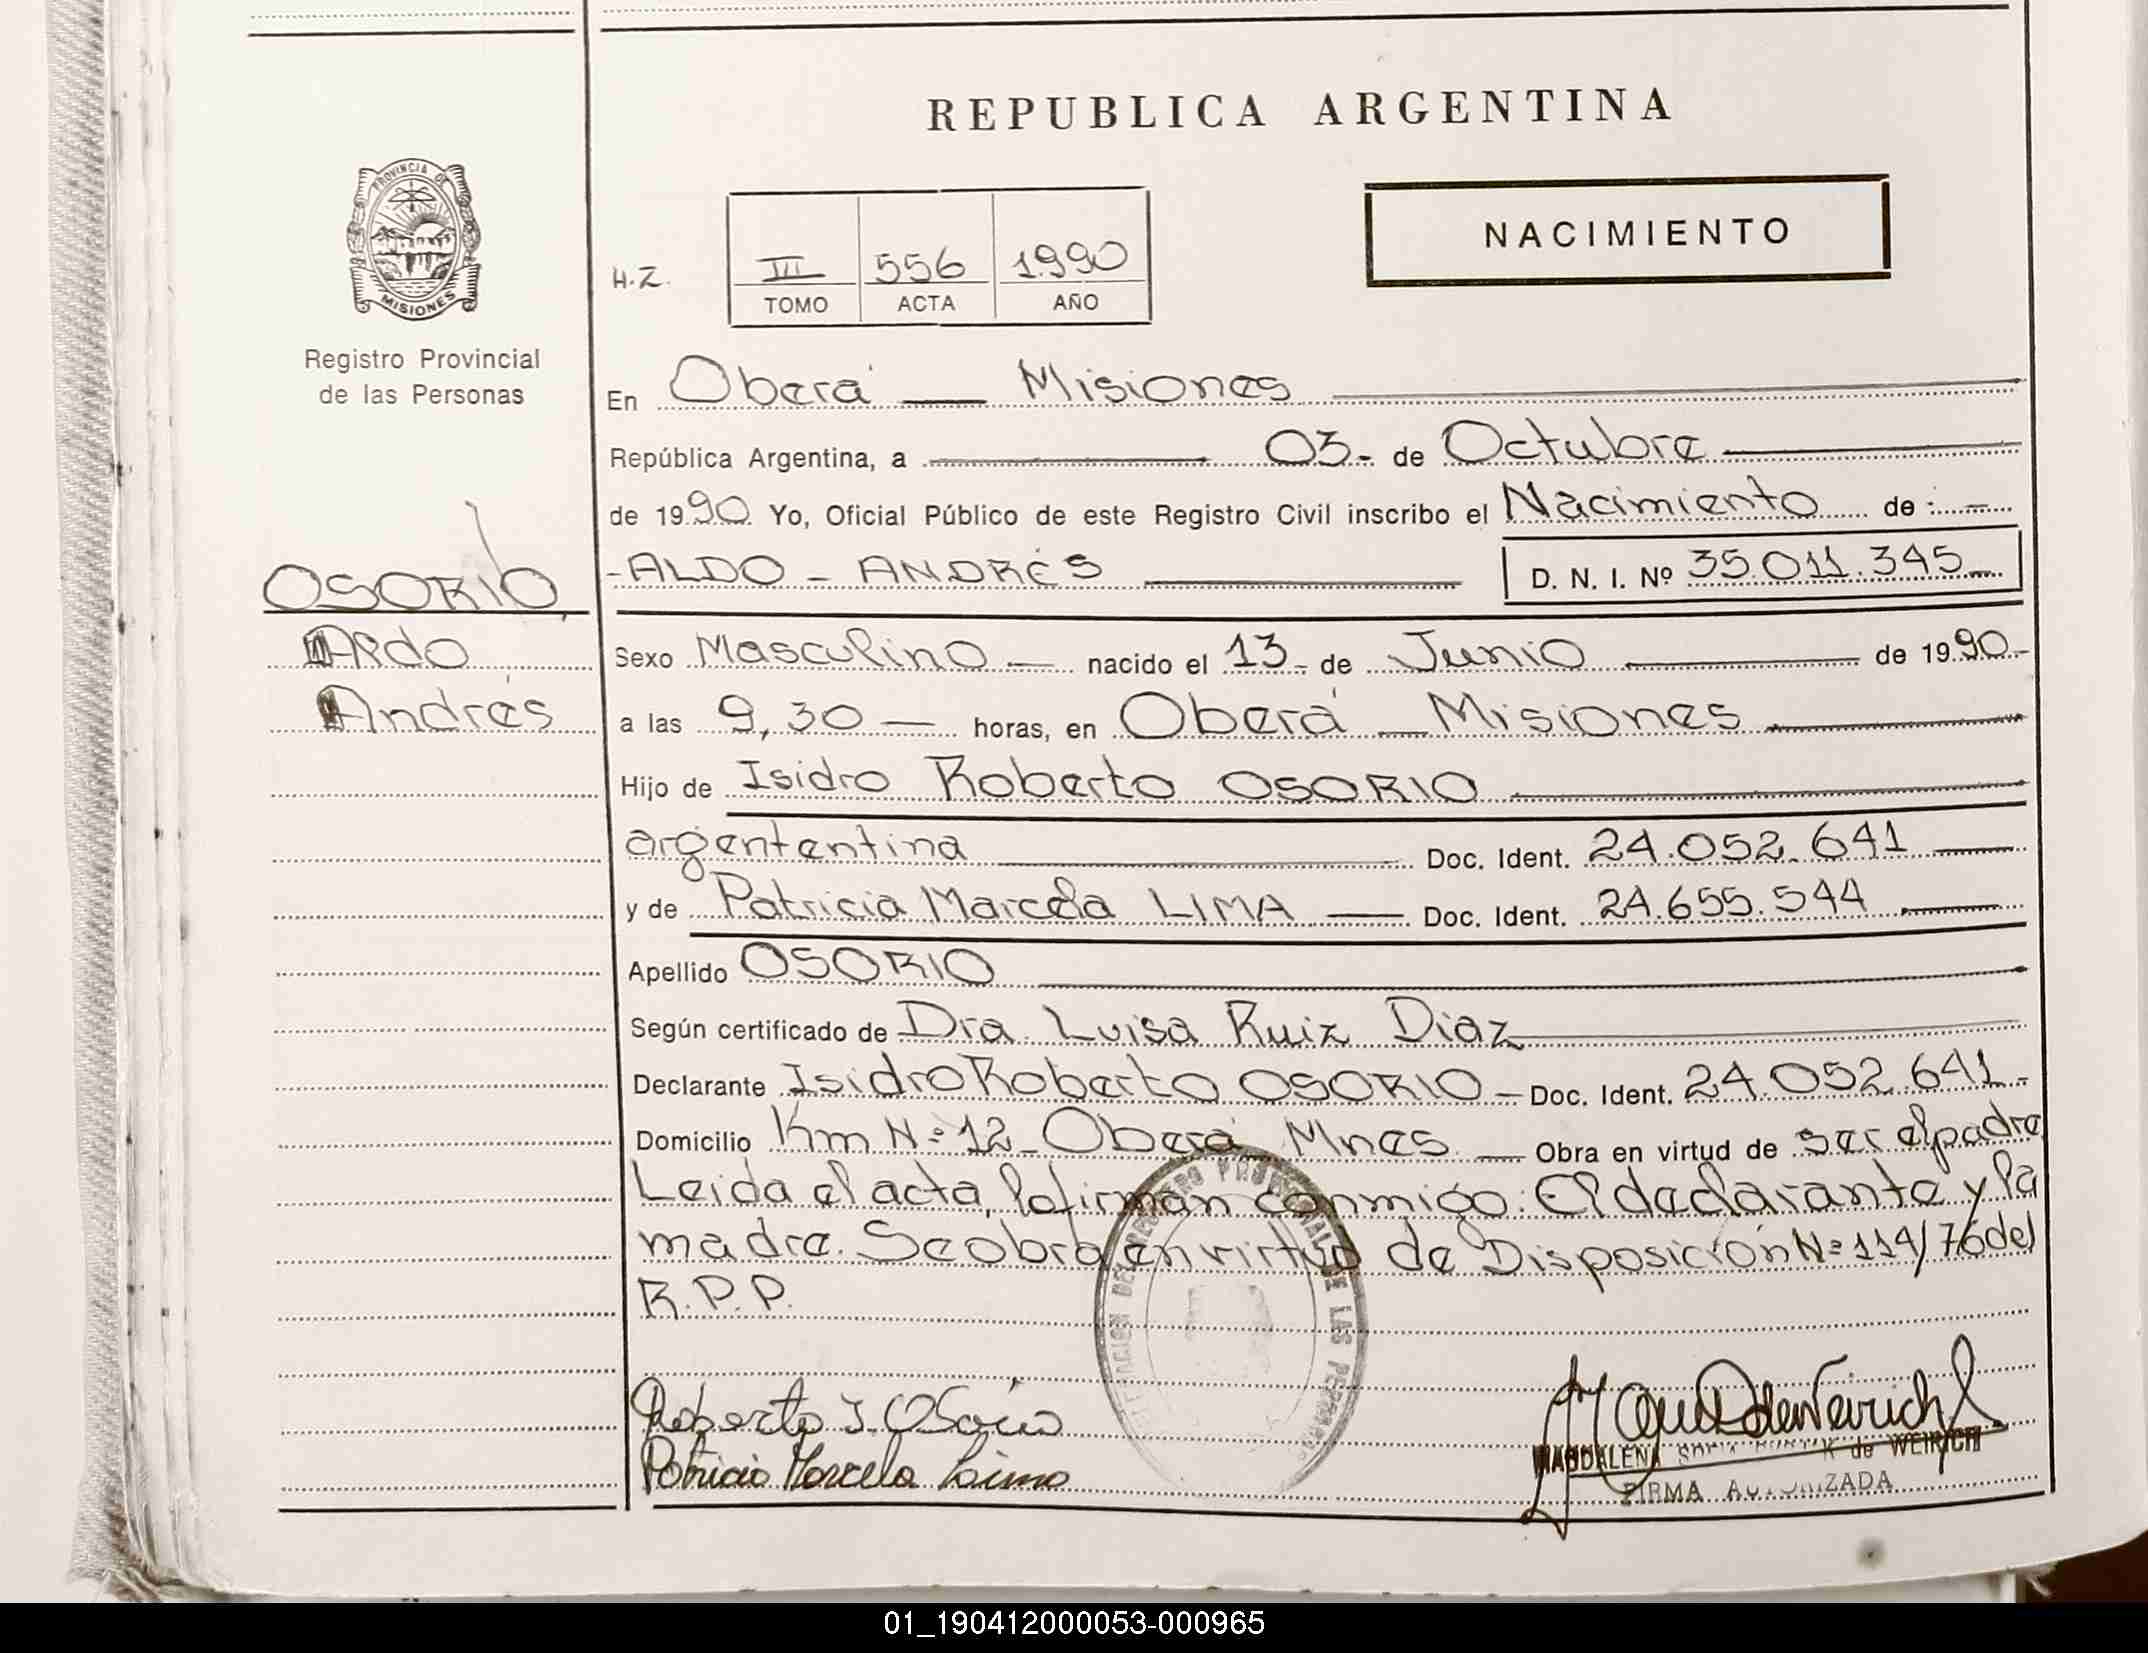 REPUBLICA ARGENTINA
PROVINCIA DE
MISIONES
Registro Provincial
de las Personas
NACIMIENTO
H.Z.
III 556 1990
TOMO ACTA AÑO
En Oberá — Misiones
República Argentina, a 03- de Octubre
de 1990 Yo, Oficial Público de este Registro Civil inscribo el Nacimiento de :-
-ALDO - ANDRÉS D. N. I. Nº 35.011.345
OSORIO
Aldo
Andrés
Sexo Masculino — nacido el 13- de Junio de 1990-
a las 9,30 — horas, en Oberá — Misiones
Hijo de Isidro Roberto OSORIO
argentantina Doc. Ident. 24.052.641
y de Patricia Marcela LIMA — Doc. Ident. 24.655.544
Apellido OSORIO
Según certificado de Dra. Luisa Ruiz Diaz
Declarante Isidro Roberto OSORIO — Doc. Ident. 24.052.641-
Domicilio Km Nº 12 - Oberá Mnes — Obra en virtud de ser el padre
Leida el acta, la firman conmigo: El declarante y la
madre. Se obra en virtud de Disposición Nº 114/76 del
R.P.P.
DELEGACION DEL REGISTRO PROVINCIAL DE LAS PERSONAS
Roberto I. Osorio
Patricia Marcela Lima
MAGDALENA de WEIRICH
FIRMA AUTORIZADA
01_190412000053-000965